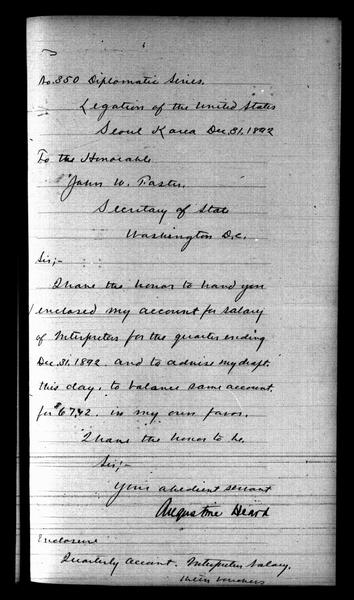 No. 350 Diplomatic Series.
Legation of the United States
Seoul Korea Dec. 31, 1892
To the Honorable
John W. Foster,
Secretary of State
Washington D.C.
Sir;-
I have the honor to hand you
enclosed my account for salary
of Interpreters for the quarter ending
Dec. 31, 1892 and to advise my draft
this day, to balance same account
for $67.42 in my own favor.
I have the honor to be
Sir;-
Your obedient servant
Augustine Heard
Enclosure
Quarterly Account. Interpreters Salary,
with vouchers